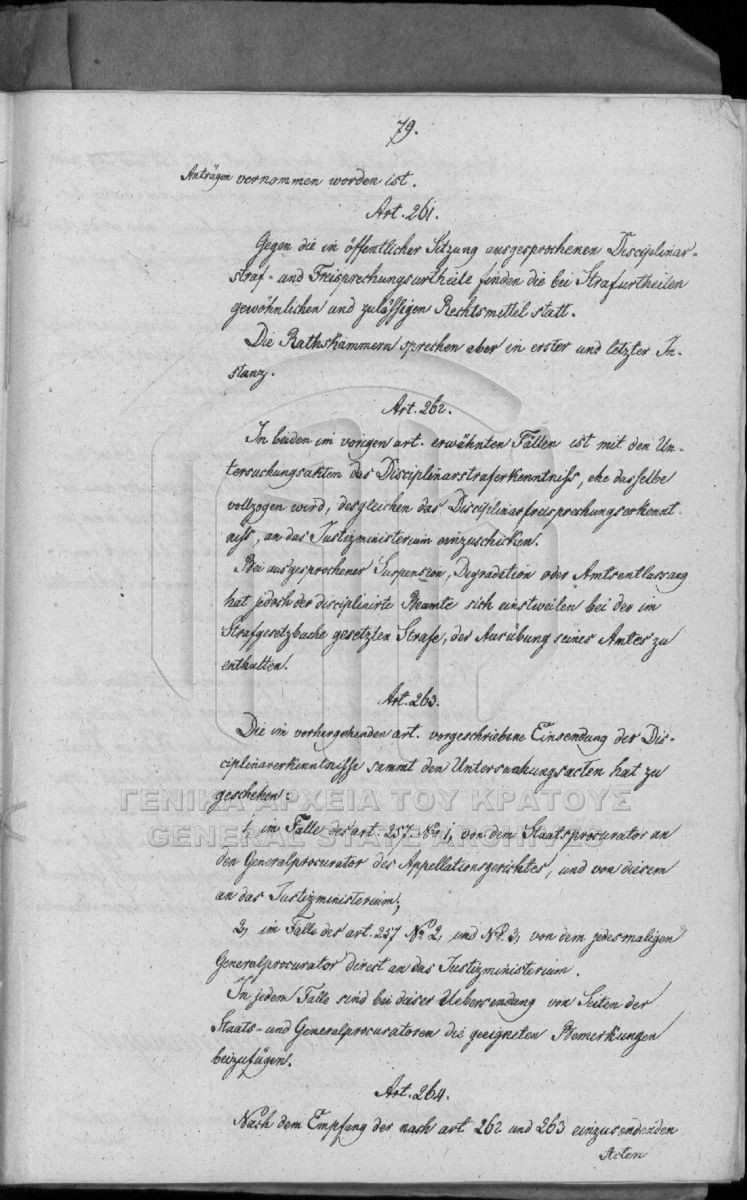 79.
Anträgen vernommen worden ist.
Art. 261.
Gegen die in öffentlicher Sitzung ausgesprochenen Disciplinar-
straf- und Freisprechungsurtheile finden die bei Strafurtheilen
gewöhnlichen und zulässigen Rechtsmittel statt.
Die Rathskammern sprechen aber in erster und letzter In-
stanz.
Art. 262.
In beiden im vorigen art. erwähnten Fällen ist mit den Un-
tersuchungsakten das Disciplinarstraferkenntniss, ehe dasselbe
vollzogen wird, desgleichen das Disciplinarfreisprechungserkennt-
niss, an das Justizministerium einzuschicken.
Bei ausgesprochener Suspension, Degradation oder Amtsentlassung
hat jedoch der disciplinirte Beamte sich einstweilen bei der im
Strafgesetzbuche gesetzten Strafe, der Ausübung seines Amtes zu
enthalten.
Art. 263.
Die im vorhergehenden art. vorgeschriebene Einsendung der Dis-
ciplinarerkenntnisse sammt den Untersuchungsacten hat zu
geschehen:
ΓΕΝΙΚΑ ΑΡΧΕΙΑ ΤΟΥ ΚΡΑΤΟΥΣ
GENERAL STATE ARCHIVES
1, im Falle des art. 257 No. 1, von dem Staatsprocurator an
den Generalprocurator des Appellationsgerichtes, und von diesem
an das Justizministerium;
2, im Falle des art. 257 No. 2, und No. 3, von dem jedesmaligen
Generalprocurator direct an das Justizministerium.
In jedem Falle sind bei dieser Uebersendung von Seiten der
Staats- und Generalprocuratoren die geeigneten Bemerkungen
beizufügen.
Art. 264.
Nach dem Empfang der nach art 262 und 263 einzusendenden
Acten